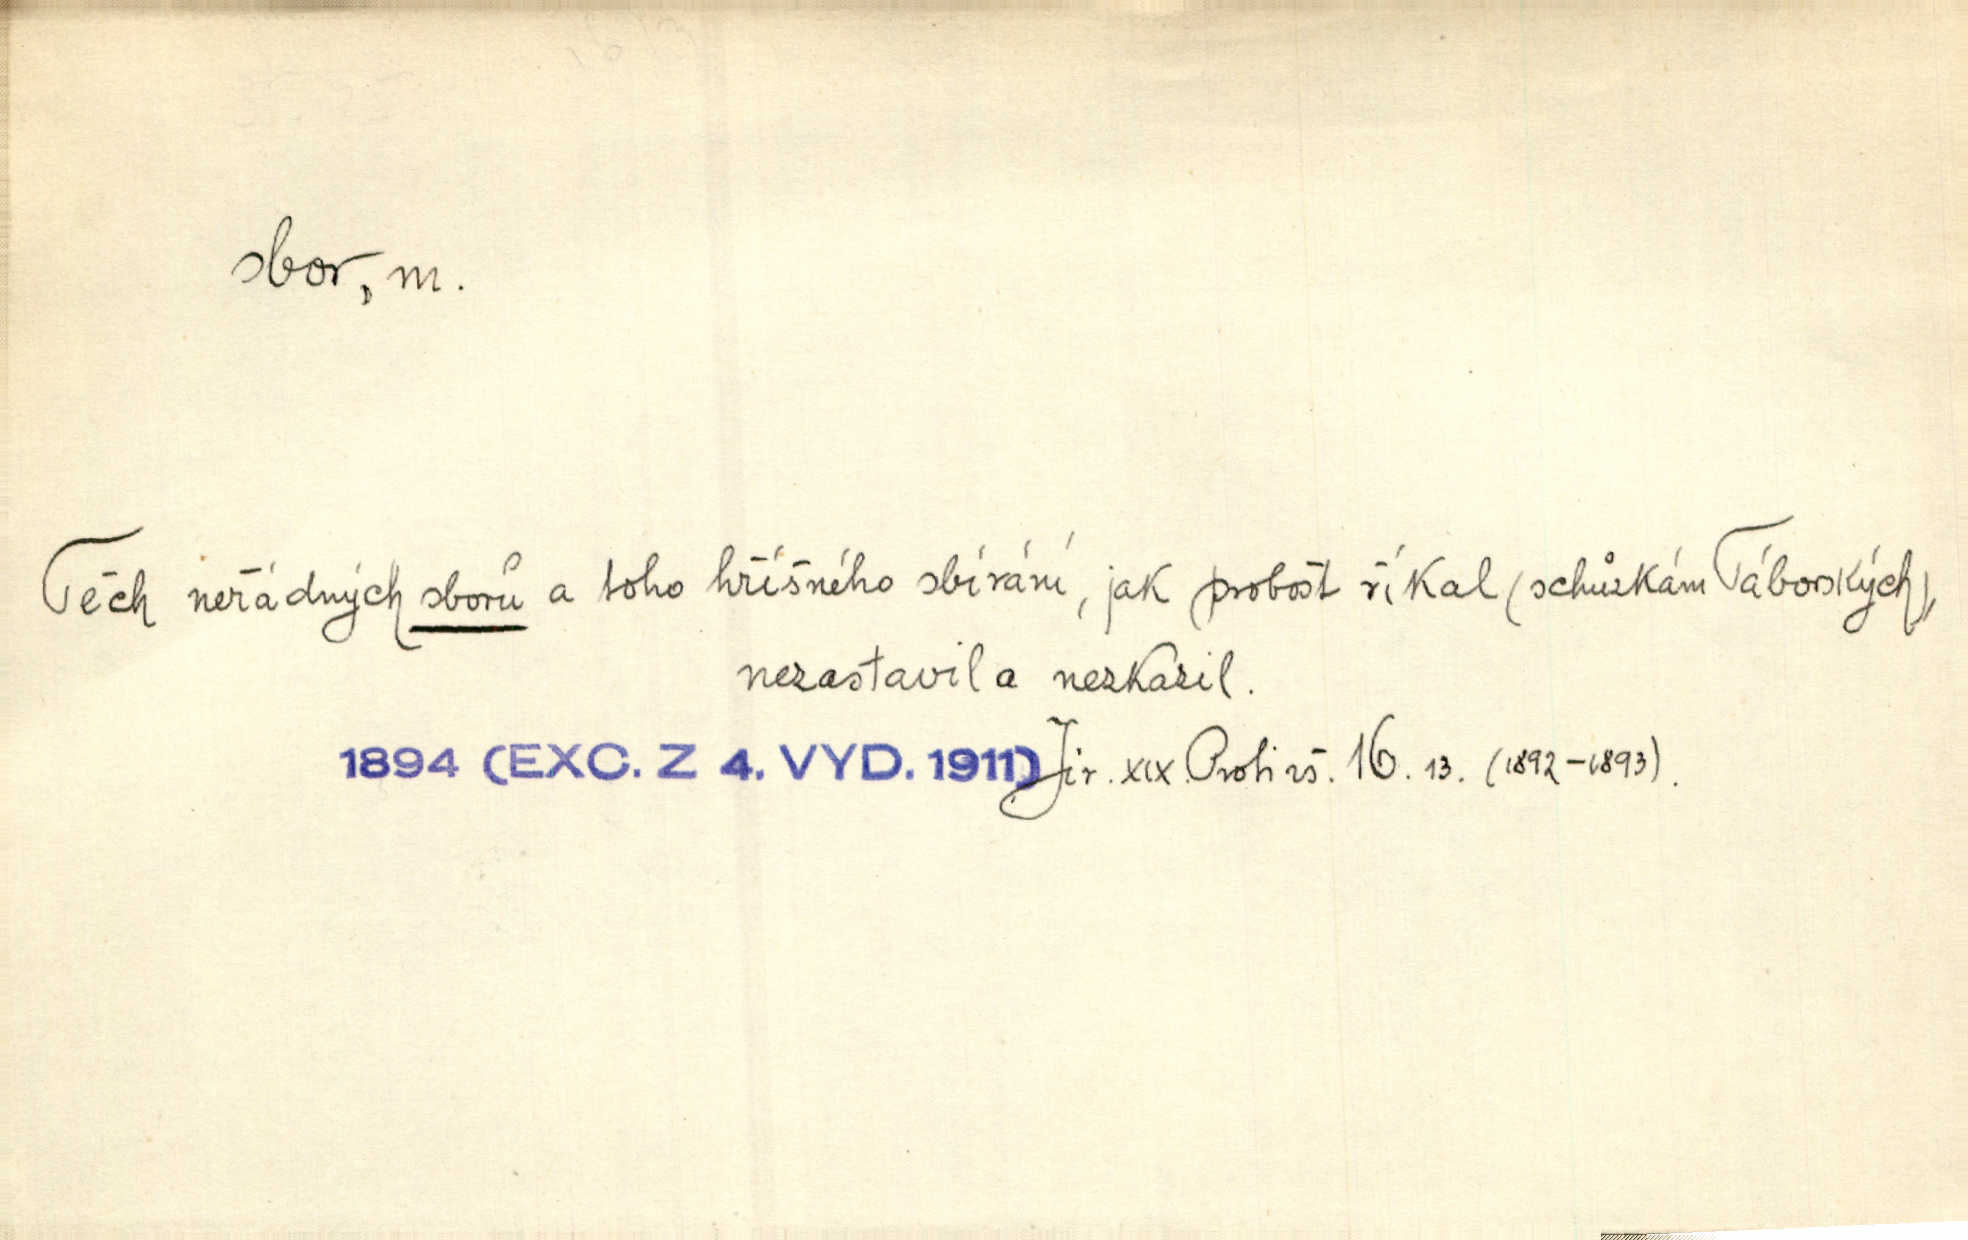 sbor, m.
Těch neřádných sborů a toho hříšného sbírání, jak probošt říkal (schůzkám Táborských),
nezastavil a nezkazil.
1894 (EXC. Z 4. VYD. 1911) Jir. XIX. Proti vš. 16. 13. (1892-1893).